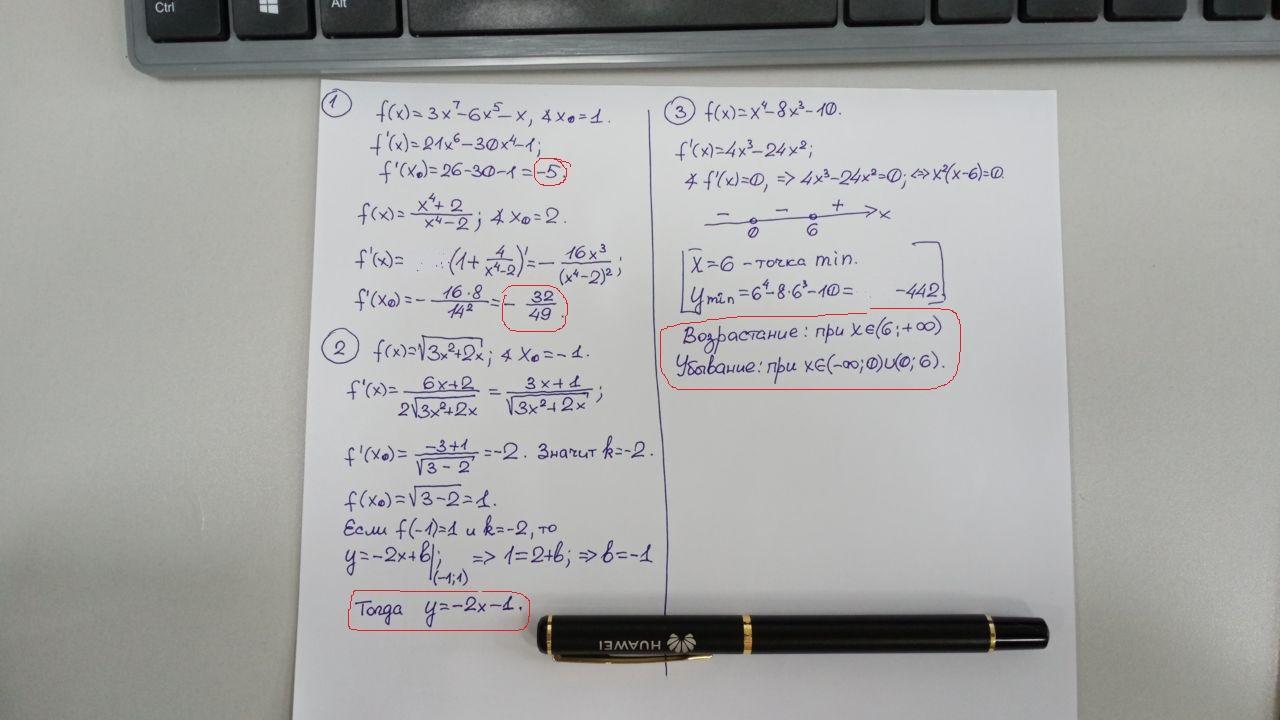 Ctrl
Alt
1
f(x)=3x⁷-6x⁵-x, ∢ x₀=1.
f'(x)=21x⁶-30x⁴-1;
f'(x₀)=26-30-1=-5.
f(x)=(x⁴+2)/(x⁴-2); ∢ x₀=2.
f'(x)= (1+4/(x⁴-2))'=-16x³/(x⁴-2)²;
f'(x₀)=-16·8/14²=-32/49.
2
f(x)=√(3x²+2x); ∢ x₀=-1.
f'(x)=(6x+2)/(2√(3x²+2x))=(3x+1)/√(3x²+2x);
f'(x₀)=(-3+1)/√(3-2)=-2. Значит k=-2.
f(x₀)=√(3-2)=1.
Если f(-1)=1 и k=-2, то
y=-2x+b|(-1;1); => 1=2+b; => b=-1
Тогда y=-2x-1.
3
f(x)=x⁴-8x³-10.
f'(x)=4x³-24x²;
∢ f'(x)=0, => 4x³-24x²=0; <=> x²(x-6)=0.
- - + x
0 6
x=6 - точка min.
y min=6⁴-8·6³-10= -442
Возрастание: при x∈(6;+∞)
Убывание: при x∈(-∞;0)∪(0;6).
HUAWEI